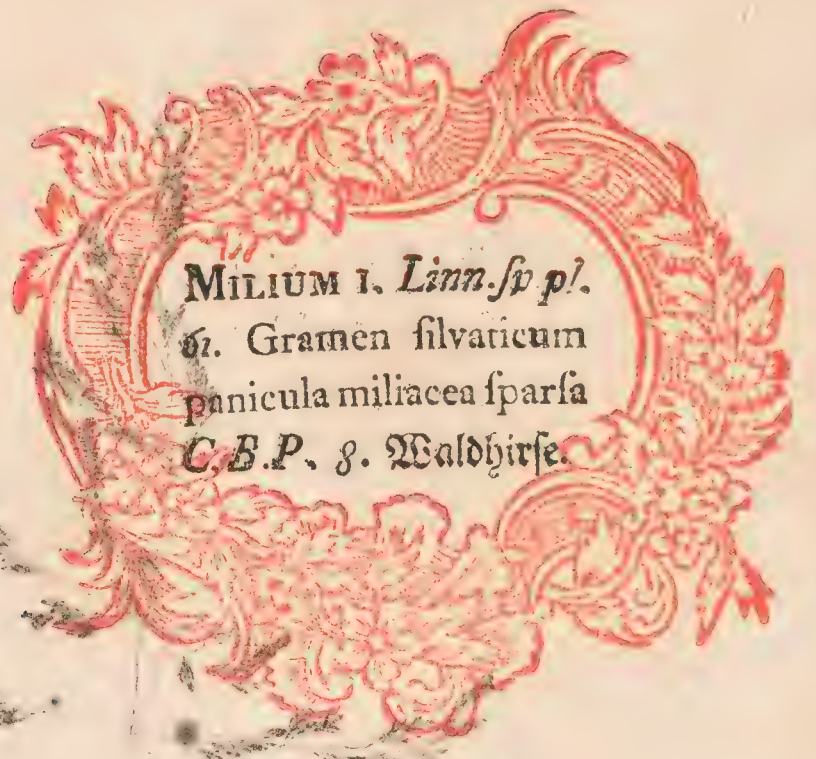 MILIUM 1. Linn. ſp pl.
61. Gramen ſilvaticum
panicula miliacea ſparſa
C.B.P. 8. Waldhirſe.